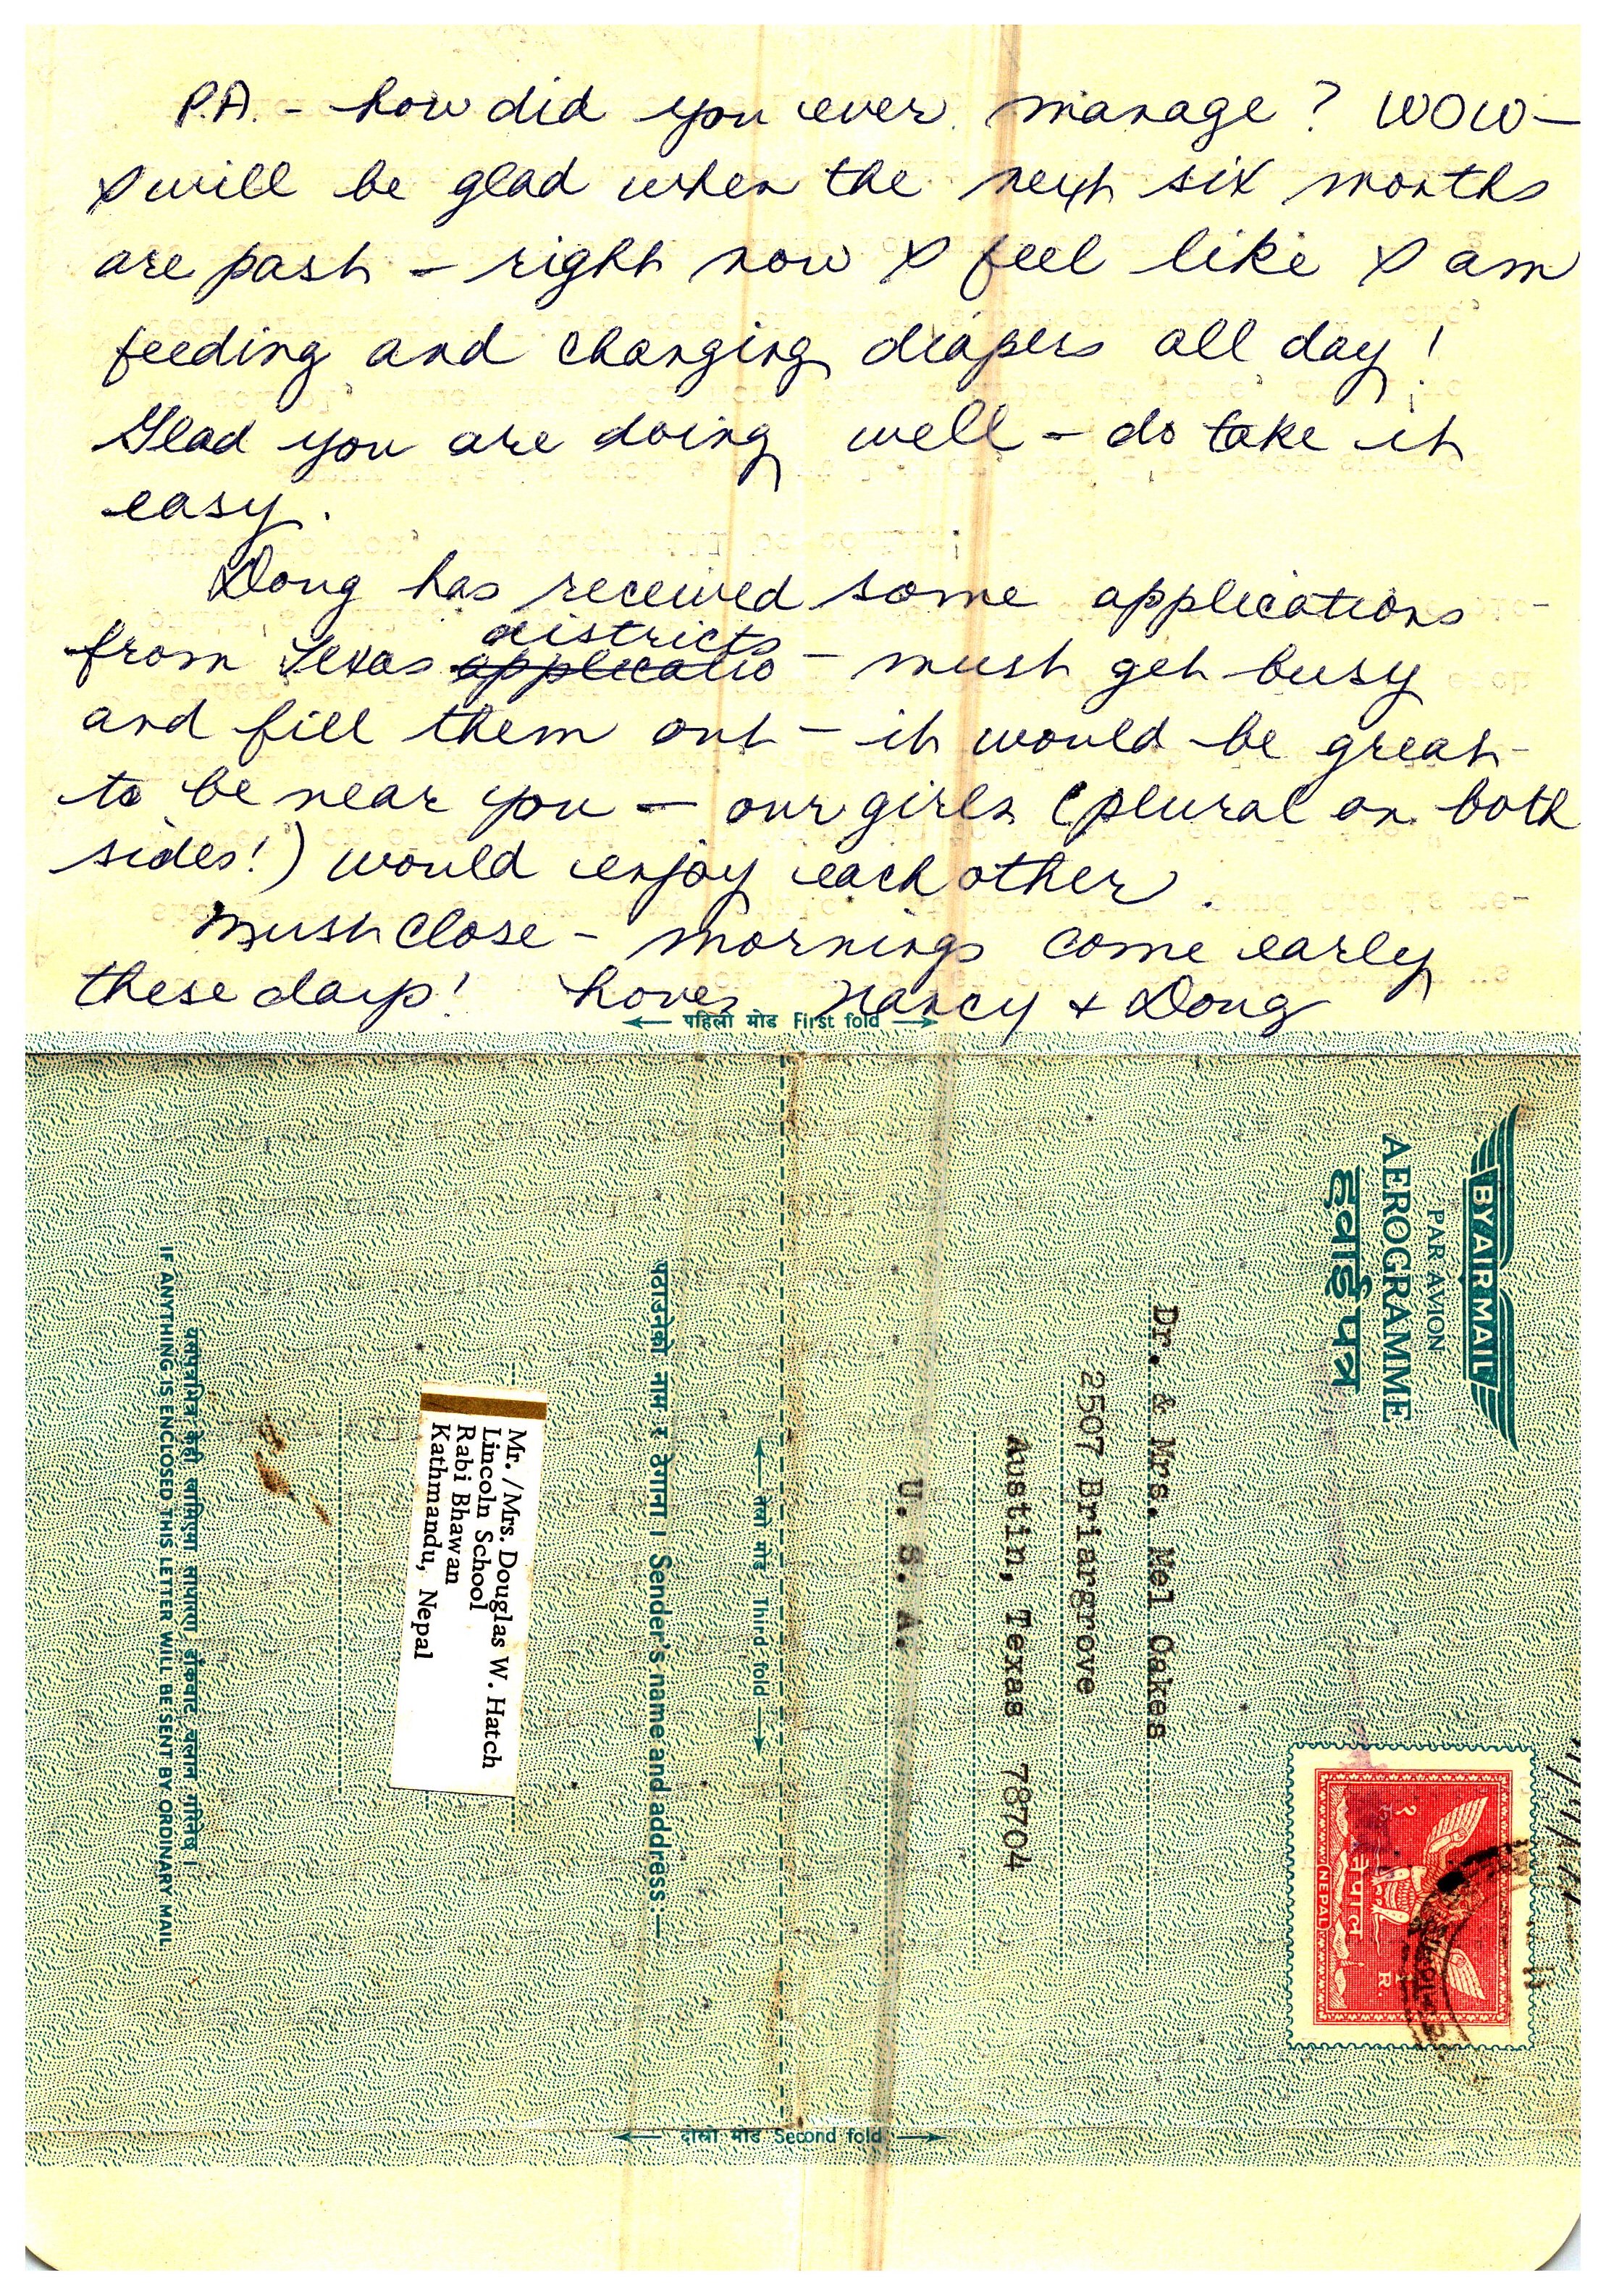 P.A. - how did you ever manage? WOW -
I will be glad when the next six months
are past - right now I feel like I am
feeding and changing diapers all day!
Glad you are doing well - do take it
easy.
Doug has received some applications
from Texas districts applicatio - must get busy
and fill them out - it would be great
to be near you - our girls (plural on both
sides!) would enjoy each other.
Must close - mornings come early
these days! Love, Nancy + Doug
पहिलो मोड First fold
BY AIR MAIL
PAR AVION
AEROGRAMME
हवाई पत्र
NEPAL
नेपाल
R.
Dr. & Mrs. Mel Oakes
2507 Briargrove
Austin, Texas 78704
U. S. A.
तेस्रो मोड Third fold
पठाउनेको नाम र ठेगाना । Sender's name and address:—
Mr. /Mrs. Douglas W. Hatch
Lincoln School
Rabi Bhawan
Kathmandu, Nepal
यसपत्रभित्र केही खामिएमा साधारण हाँकबाट चलान गरिनेछ ।
IF ANYTHING IS ENCLOSED THIS LETTER WILL BE SENT BY ORDINARY MAIL.
दोस्रो मोड Second fold